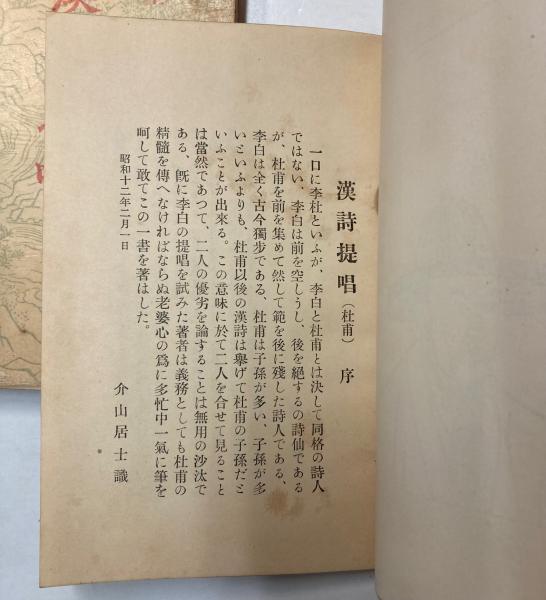 漢詩提唱（杜甫）　序
一口に李杜といふが、李白と杜甫とは決して同格の詩人
ではない、李白は前を空しうし、後を絶するの詩仙である
が、杜甫を前を集めて然して範を後に殘した詩人である、
李白は全く古今獨步である、杜甫は子孫が多い、子孫が多
いといふよりも、杜甫以後の漢詩は擧げて杜甫の子孫だと
いふことが出來る。この意味に於て二人を合せて見ること
は當然であつて、二人の優劣を論することは無用の沙汰で
ある、既に李白の提唱を試みた著者は義務としても杜甫の
精髓を傳へなければならぬ老婆心の爲に多忙中一氣に筆を
呵して敢てこの一書を著はした。
昭和十二年二月一日
介山居士識